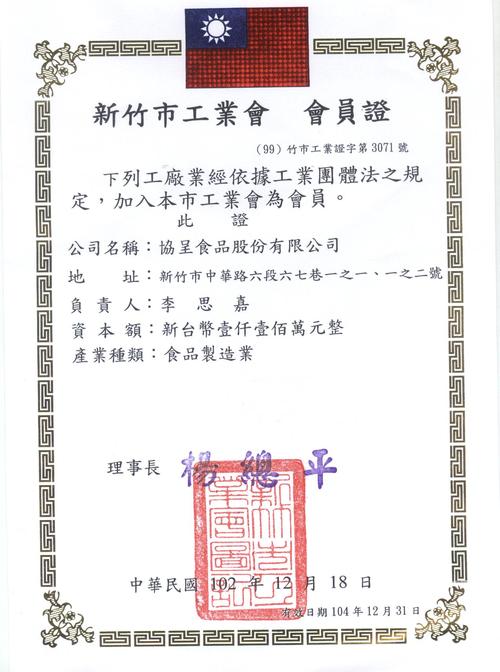 新竹市工業會　會員證
（99）竹市工業證字第3071號
下列工廠業經依據工業團體法之規
定，加入本市工業會為會員。
此　證
公司名稱：協呈食品股份有限公司
地　址：新竹市中華路六段六七巷一之一、一之二號
負責人：李思嘉
資本額：新台幣壹仟壹佰萬元整
產業種類：食品製造業
理事長　楊總平
中華民國 102 年 12 月 18 日
有效日期104年12月31日